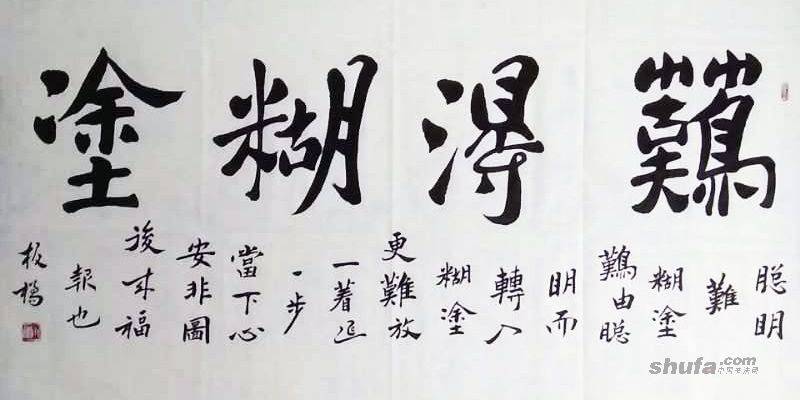 難得糊塗
聪明
難
糊塗
難由聪
明而
轉入
糊塗
更難放
一著退
一步
當下心
安非圖
後来福
報也
板橋
shufa.com
中国书法网